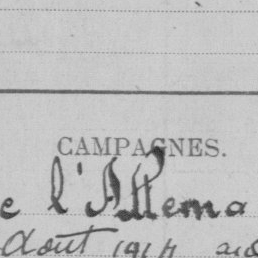 CAMPAGNES.
e l'Allema
Août 1914 au